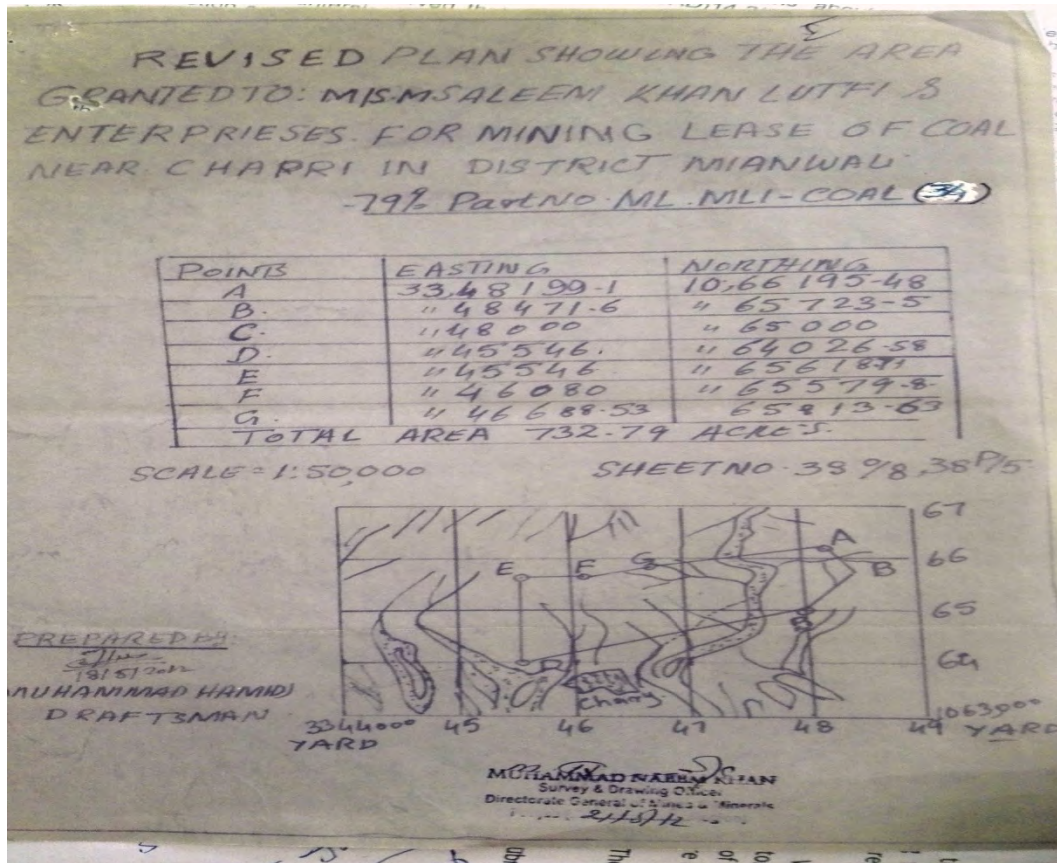 REVISED PLAN SHOWING THE AREA
GRANTED TO: M/S.M SALEEM KHAN LUTFI &
ENTERPRIESES. FOR MINING LEASE OF COAL
NEAR CHAPRI IN DISTRICT MIANWALI
-79% Part No. ML. MLI-COAL (34)
POINTS EASTING NORTHING
A 33,48199.1 10,66195.48
B. " 48471.6 " 65723.5
C. " 48000 " 65000
D. " 45546. " 64026.58
E " 45546 " 65618.
F " 46080 " 65579.8
G. " 46688.53 65813.63
TOTAL AREA 732.79 ACRES.
SCALE = 1:50,000 SHEET NO. 38 O/8, 38 P/5
67
A
E F G B 66
65
D 64
Chapri
1063000
3344000 45 46 47 48 49 YARD
YARD
PREPARED BY:
18/5/2012
(MUHAMMAD HAMID)
DRAFTSMAN
MUHAMMAD NAEEM KHAN
Survey & Drawing Officer
Directorate General of Mines & Minerals